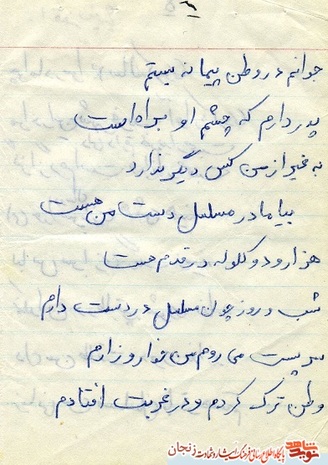 جوانم در وطن پیمانه بستم
پدر دارم که چشم او براه است
به غیر از من کس دیگر ندارد
بیا مادر مسلسل دست من هست
هزار و دو گلوله در
شب و روز چون مسلسل در دست دارم
سر پست می روم من
وطن ترک کردم و در غربت افتادم
نوید شاهد
پایگاه اطلاع رسانی فرهنگ ایثار و شهادت زنجان